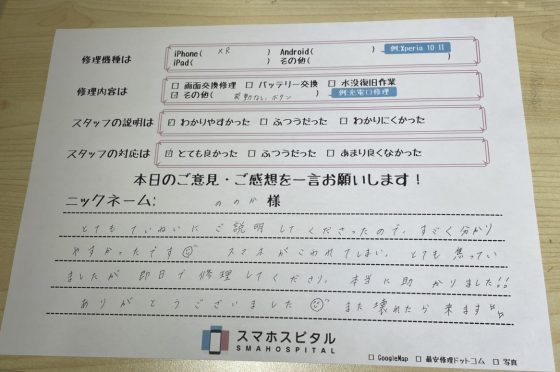 修理機種は
iPhone( XR ) Android( ) 例:Xperia 10 II
iPad( ) その他( )
修理内容は
□ 画面交換修理 □ バッテリー交換 □ 水没復旧作業
☑ その他( ボタン ) 例:充電口修理
スタッフの説明は ☑ わかりやすかった □ ふつうだった □ わかりにくかった
スタッフの対応は ☑ とても良かった □ ふつうだった □ あまり良くなかった
本日のご意見・ご感想を一言お願いします!
ニックネーム: ののか 様
とてもていねいにご説明してくださったので、すごく分かり
やすかったです☺ スマホがこわれてしまい、とても焦ってい
ましたが即日で修理してくださり、本当に助かりました!!
ありがとうございました☺ また壊れたら来ます
スマホスピタル
SMAHOSPITAL
□ GoogleMap □ 最安修理ドットコム □ 写真